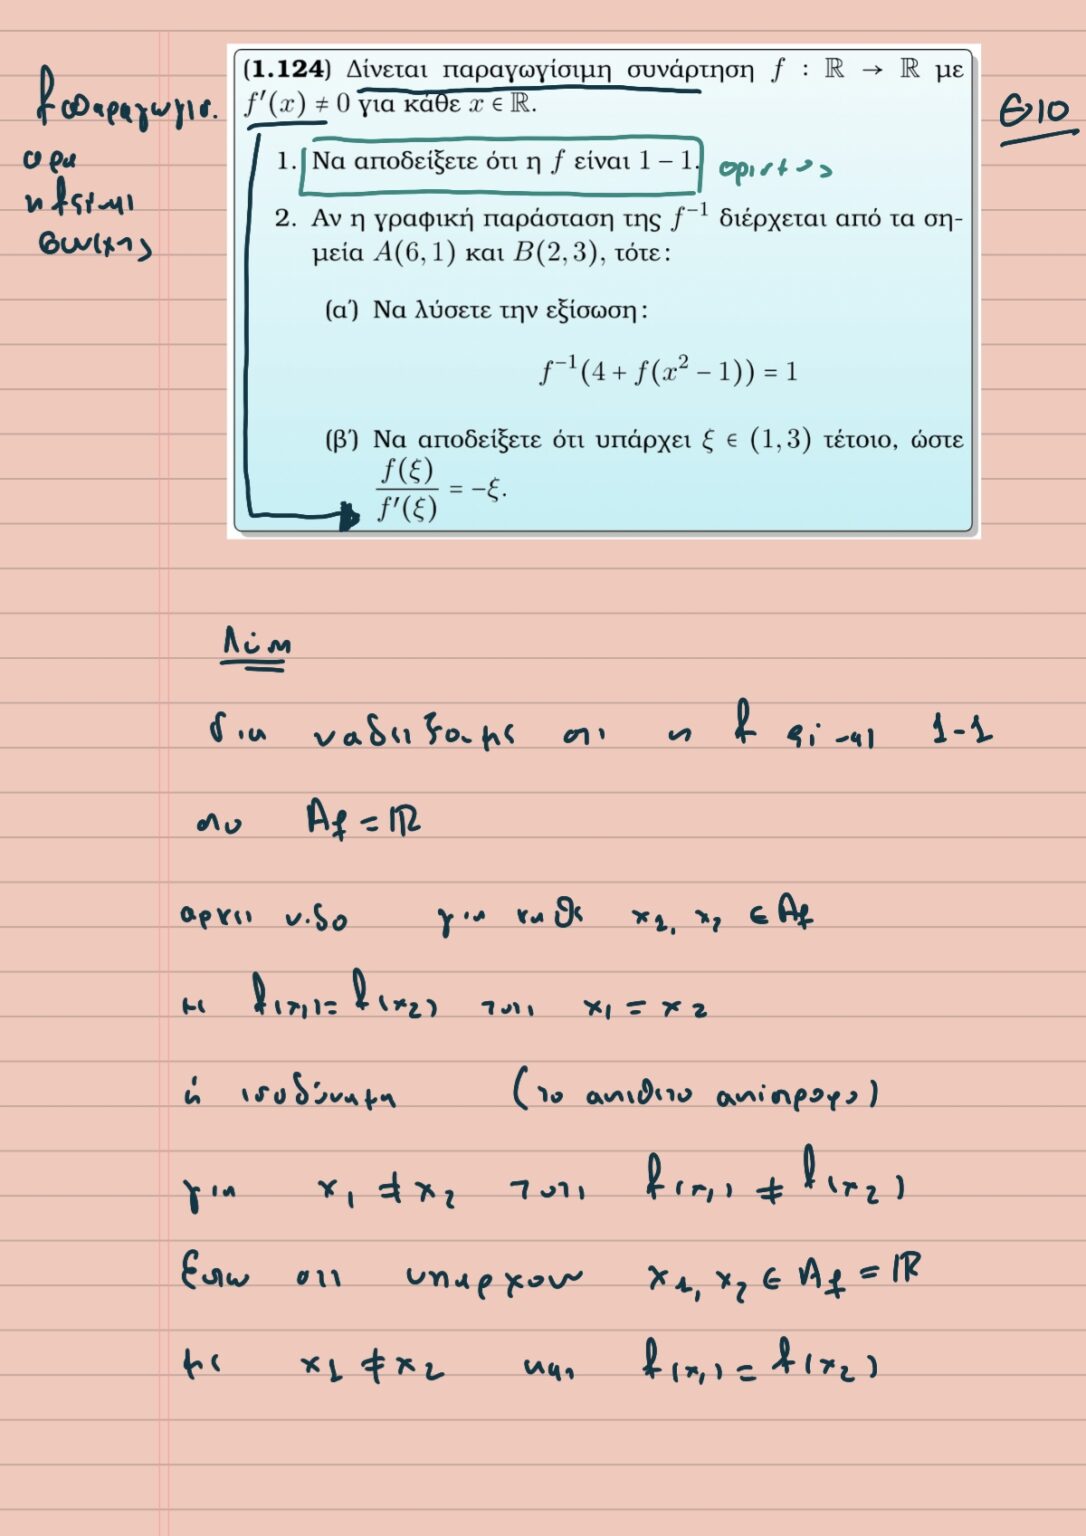 f παραγωγισ.
αρα
η f είναι
συνεχης
Θ10
(1.124) Δίνεται παραγωγίσιμη συνάρτηση f : ℝ → ℝ με
f′(x) ≠ 0 για κάθε x ∈ ℝ.
1. Να αποδείξετε ότι η f είναι 1 − 1. ορισμος
2. Αν η γραφική παράσταση της f⁻¹ διέρχεται από τα ση-
μεία A(6, 1) και B(2, 3), τότε:
(α΄) Να λύσετε την εξίσωση:
f⁻¹(4 + f(x² − 1)) = 1
(β΄) Να αποδείξετε ότι υπάρχει ξ ∈ (1, 3) τέτοιο, ώστε
f(ξ)/f′(ξ) = −ξ.
Λύση
για να δειξουμε οτι η f είναι 1-1
στο A_f = ℝ
αρκει ν.δο για καθε x₁, x₂ ∈ A_f
με f(x₁) = f(x₂) τοτε x₁ = x₂
ή ισοδύναμα (το αντιθετο αντίστροφο)
για x₁ ≠ x₂ τοτε f(x₁) ≠ f(x₂)
Εστω οτι υπαρχουν x₁, x₂ ∈ A_f = ℝ
με x₁ ≠ x₂ και f(x₁) = f(x₂)